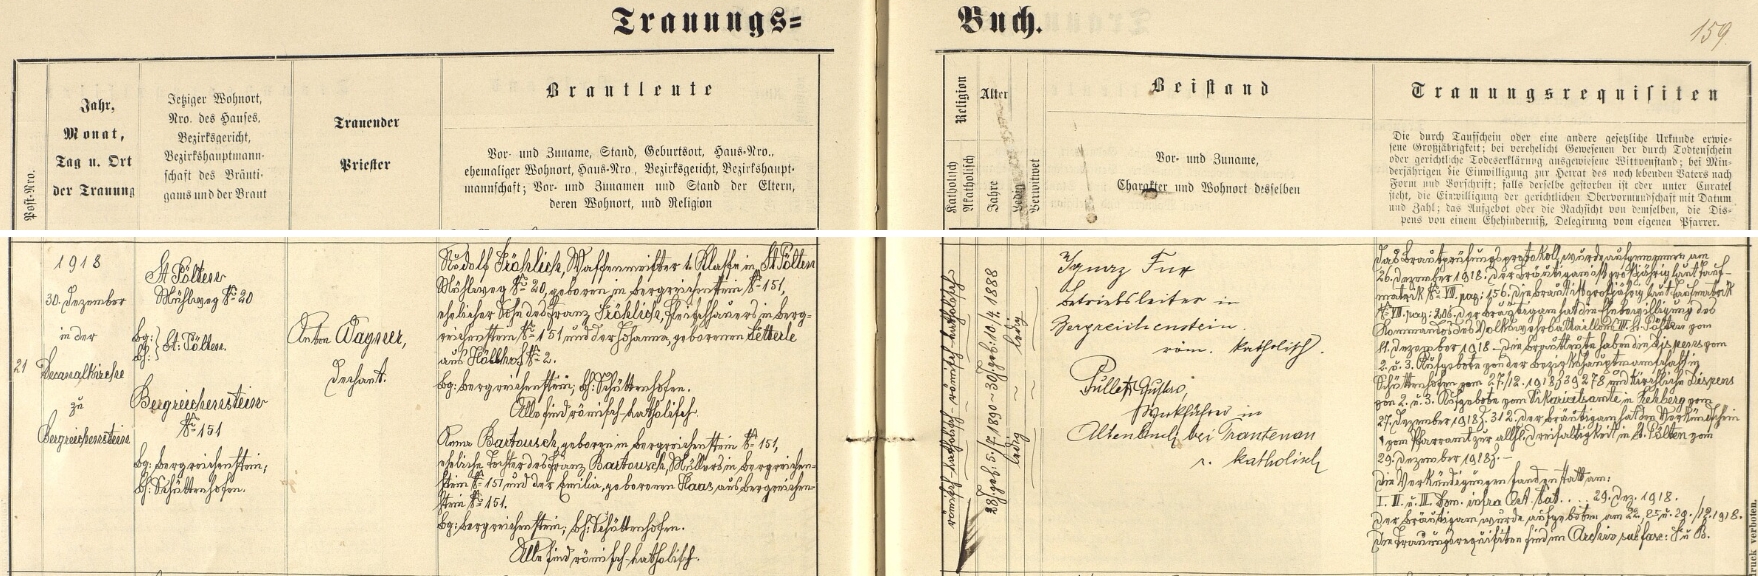 Trauungs=
Buch.
159.
Post-Nro.
Jahr,
Monat,
Tag u. Ort
der Trauung
Jetziger Wohnort,
Nro. des Hauses,
Bezirksgericht,
Bezirkshauptmann-
schaft des Bräuti-
gams und der Braut
Trauender
Priester
Brautleute
Vor- und Zuname, Stand, Geburtsort, Haus-Nro.,
ehemaliger Wohnort, Haus-Nro., Bezirksgericht, Bezirkshaupt-
mannschaft; Vor- und Zunamen und Stand der Eltern,
deren Wohnort, und Religion
Religion
Katholisch
Akatholisch
Alter
Jahre
Ledig
Verwitwet
Beistand
Vor- und Zuname,
Charakter und Wohnort desselben
Trauungsrequisiten
Die durch Taufschein oder eine andere gesetzliche Urkunde erwie-
sene Großjährigkeit; bei verehelicht Gewesenen der durch Todtenschein
oder gerichtliche Todeserklärung ausgewiesene Wittwenstand; bei Min-
derjährigen die Einwilligung zur Heirat des noch lebenden Vaters nach
Form und Vorschrift; falls derselbe gestorben ist oder unter Curatel
steht, die Einwilligung der gerichtlichen Obervormundschaft mit Datum
und Zahl; das Aufgebot oder die Nachsicht von demselben, die Dis-
pens von einem Ehehinderniß, Delegirung vom eigenen Pfarrer.
21
1918
30. Dezember
in der
Decanalkirche
zu
Bergreichenstein
St Pölten
Mühlweg No 20
bg:
bh: } St. Pölten.
Bergreichenstein
No 151
bg: Bergreichenstein;
bh: Schüttenhofen.
Anton Wagner,
Dechant.
Rudolf Fröhlich, Waffenmeister 1. Klasse in St Pölten
Mühlweg No 20, geboren in Bergreichenstein No 151,
ehelicher Sohn des Franz Fröhlich, in Berg-
reichenstein No 151 und der Johanna, geborenen
aus No 2.
bg: Bergreichenstein; bh: Schüttenhofen.
Alle sind römisch-katholisch.
Anna Bartousch, geboren in Bergreichenstein No 151,
eheliche Tochter des Franz Bartousch, Müllers in Bergreichen-
stein No 151 und der Emilia, geborenen Haas aus Bergreichen-
stein No 151.
bg: Bergreichenstein; bh: Schüttenhofen.
Alle sind römisch-katholisch.
römisch-katholisch – römisch-katholisch
28 geb: 5./7. 1890 ~ 30 geb: 10./4. 1888
ledig ~ ledig
Ignaz Fux
Betriebsleiter in
Bergreichenstein.
röm. katholisch.
Gustav,
in
Altenbuch bei Trautenau
r. katholisch
Das Brautprüfungsprotokoll wurde aufgenommen am
26. Dezember 1918. Der Bräutigam ist großjährig laut Tauf-
matrik No VII, pag: 156. Die Braut ist großjährig laut Taufmatrik
No VII pag: 206. Der Bräutigam hat die Ehebewilligung des
Kommandos des in St. Pölten vom
Dezember 1918. Die Brautleute haben die Dispens vom
2. u. 3. Aufgebote von der Bezirkshauptmannschaft
Schüttenhofen vom 27./12. 1918 Z 39278 und kirchliche Dispens
vom 2. u. 3. Aufgebote vom Vikariatsamte in Rehberg vom
27. Dezember 1918 Z. 312. Der Bräutigam hat den Verkündschein
vom Pfarramt zur allhl. Dreifaltigkeit in St. Pölten vom
29. Dezember 1918
Die Verkündigungen fanden statt am:
I. II. u. III. Dom. infra Oct. Nat. ... 29. Dez. 1918.
Der Bräutigam wurde aufgeboten am 22. 25. u. 29./12. 1918.
Die Trauungsrequisiten sind im Archiv sub fasc: F u B.